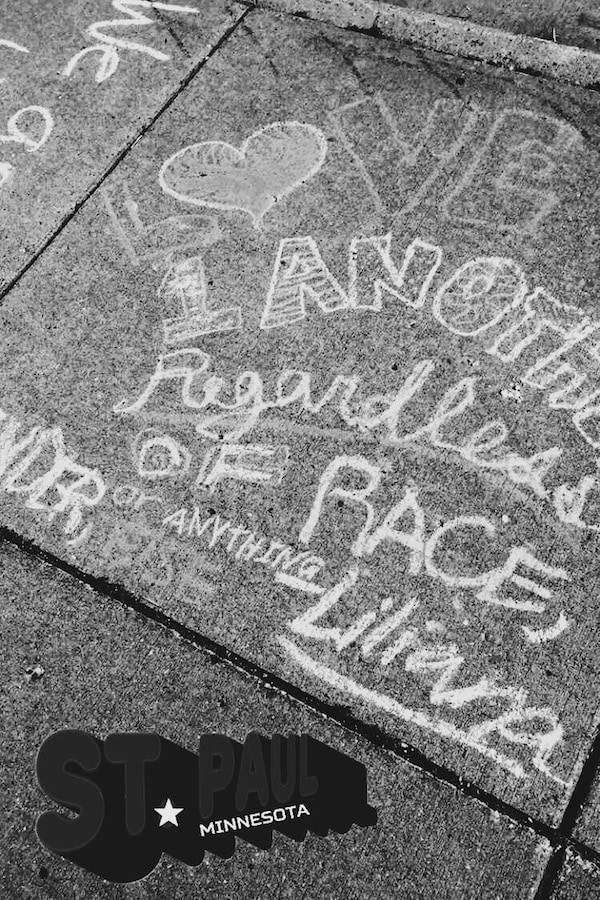 We
L♥VE
1 ANOTHE
Regardless
OF RACE,
NDER,
or ANYTHING
Liliana
ST PAUL
MINNESOTA